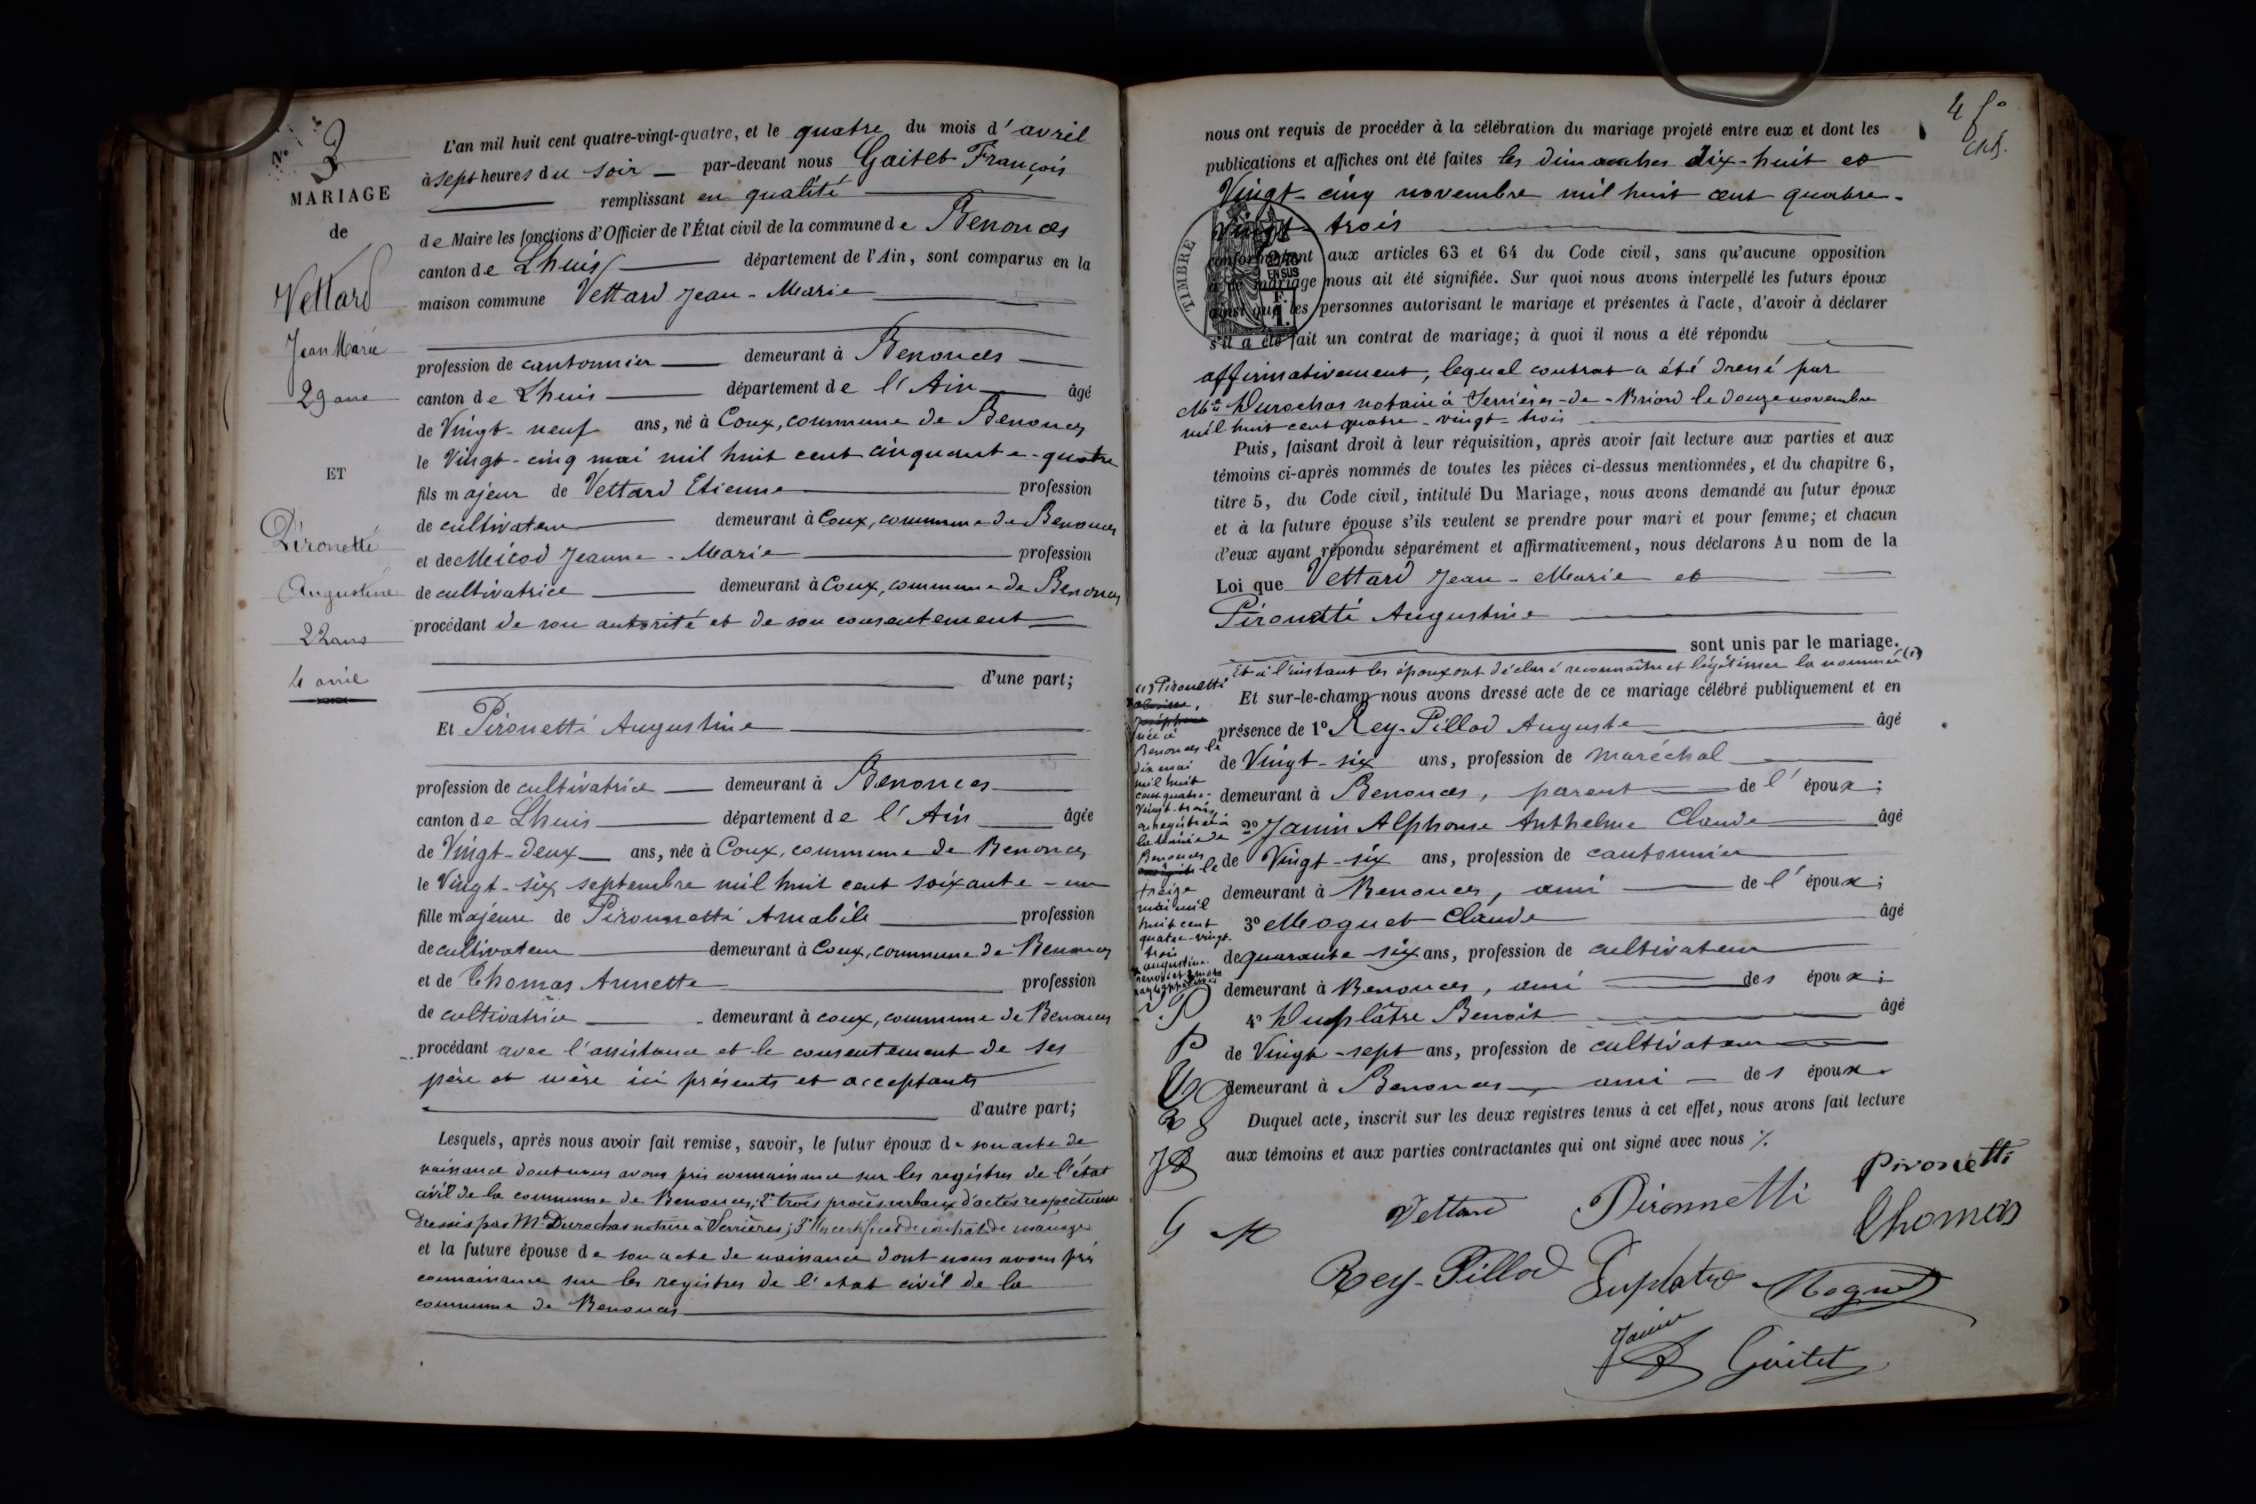 N° 3
3
MARIAGE
de
Vettard
Jean Marie
29 ans
ET
Pironetti
Augustine
22 ans
4 avril
L'an mil huit cent quatre-vingt-quatre, et le quatre du mois d'avril
à sept heures du soir par-devant nous Gaitet François
remplissant en qualité
de Maire les fonctions d'Officier de l'État civil de la commune de Benonces
canton de Lhuis département de l'Ain, sont comparus en la
maison commune Vettard Jean-Marie
profession de cantonnier demeurant à Benonces
canton de Lhuis département de l'Ain âgé
de Vingt-neuf ans, né à Coux, commune de Benonces
le Vingt-cinq mai mil huit cent cinquante-quatre
fils majeur de Vettard Etienne profession
de cultivateur demeurant à Coux, commune de Benonces
et de Micod Jeanne-Marie profession
de cultivatrice demeurant à Coux, commune de Benonces
procédant de son autorité et de son consentement
d'une part;
Et Pironetti Augustine
profession de cultivatrice demeurant à Benonces
canton de Lhuis département de l'Ain âgée
de Vingt-deux ans, née à Coux, commune de Benonces
le Vingt-six septembre mil huit cent soixante-un
fille majeure de Pironnetti Amabile profession
de cultivateur demeurant à Coux, commune de Benonces
et de Thomas Annette profession
de cultivatrice demeurant à coux, commune de Benonces
procédant avec l'assistance et le consentement de ses
père et mère ici présents et acceptants
d'autre part;
Lesquels, après nous avoir fait remise, savoir, le futur époux de son acte de
naissance dont nous avons pris connaissance sur les registres de l'état
civil de la commune de Benonces; 2° trois procès verbaux d'actes respectueux
dressés par Me Durochas notaire à Serrières; 3° Un certificat de contrat de mariage
et la future épouse de son acte de naissance dont nous avons pris
connaissance sur les registres de l'etat civil de la
commune de Benonces
4 fo
nous ont requis de procéder à la célébration du mariage projeté entre eux et dont les
publications et affiches ont été faites les dimanches dix-huit et
Vingt-cinq novembre mil huit cent quatre-
vingt-trois
TIMBRE
EN SUS
conformément aux articles 63 et 64 du Code civil, sans qu'aucune opposition
à ce mariage nous ait été signifiée. Sur quoi nous avons interpellé les futurs époux
ainsi que les personnes autorisant le mariage et présentes à l'acte, d'avoir à déclarer
s'il a été fait un contrat de mariage; à quoi il nous a été répondu
affirmativement, lequel contrat a été dressé par
Me Durochas notaire à Serrières-de-Briord le douze novembre
mil huit cent quatre-vingt-trois
Puis, faisant droit à leur réquisition, après avoir fait lecture aux parties et aux
témoins ci-après nommés de toutes les pièces ci-dessus mentionnées, et du chapitre 6,
titre 5, du Code civil, intitulé Du Mariage, nous avons demandé au futur époux
et à la future épouse s'ils veulent se prendre pour mari et pour femme; et chacun
d'eux ayant répondu séparément et affirmativement, nous déclarons Au nom de la
Loi que Vettard Jean-Marie et
Pironetti Augustine
sont unis par le mariage.
Et à l'instant les époux ont déclaré reconnaître et légitimer la nommée (1)
Et sur-le-champ nous avons dressé acte de ce mariage célébré publiquement et en
présence de 1° Rey-Pillod Auguste âgé
de Vingt-six ans, profession de maréchal
demeurant à Benonces, parent de l'époux;
2° Janin Alphonse Anthelme Claude âgé
de Vingt-six ans, profession de cantonnier
demeurant à Benonces, ami de l'époux;
3° Moguet Claude âgé
de quarante-six ans, profession de cultivateur
demeurant à Benonces, ami des époux;
4° Duplâtre Benoît âgé
de Vingt-sept ans, profession de cultivateur
demeurant à Benonces, ami des époux.
Duquel acte, inscrit sur les deux registres tenus à cet effet, nous avons fait lecture
aux témoins et aux parties contractantes qui ont signé avec nous ./.
(1) Pironetti
Joséphine
née à
Benonces le
dix mai
mil huit
cent quatre-
vingt-trois,
enregistrée à
la mairie de
Benonces
le
treize
mai mil
huit cent
quatre-vingt-
trois
augustine
V P
P
G M
Vettard Pironnetti Pironetti
Thomas
Rey-Pillod Duplatre Moguet
Janin
Gaitet